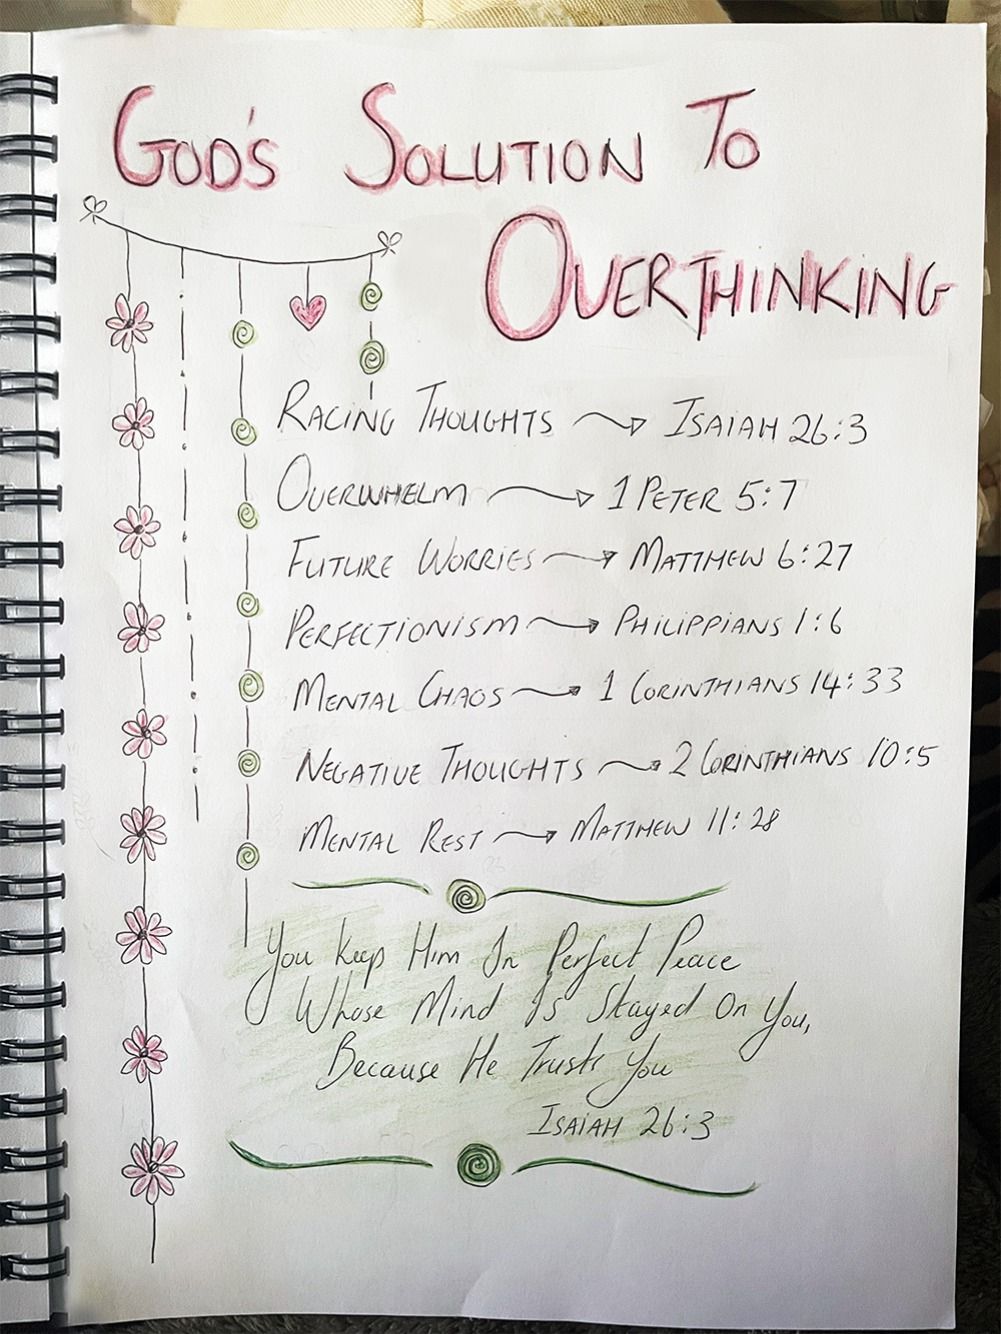 God's Solution To
Overthinking
Racing Thoughts → Isaiah 26:3
Overwhelm → 1 Peter 5:7
Future Worries → Matthew 6:27
Perfectionism → Philippians 1:6
Mental Chaos → 1 Corinthians 14:33
Negative Thoughts → 2 Corinthians 10:5
Mental Rest → Matthew 11:28
You Keep Him In Perfect Peace
Whose Mind Is Stayed On You,
Because He Trusts You
Isaiah 26:3